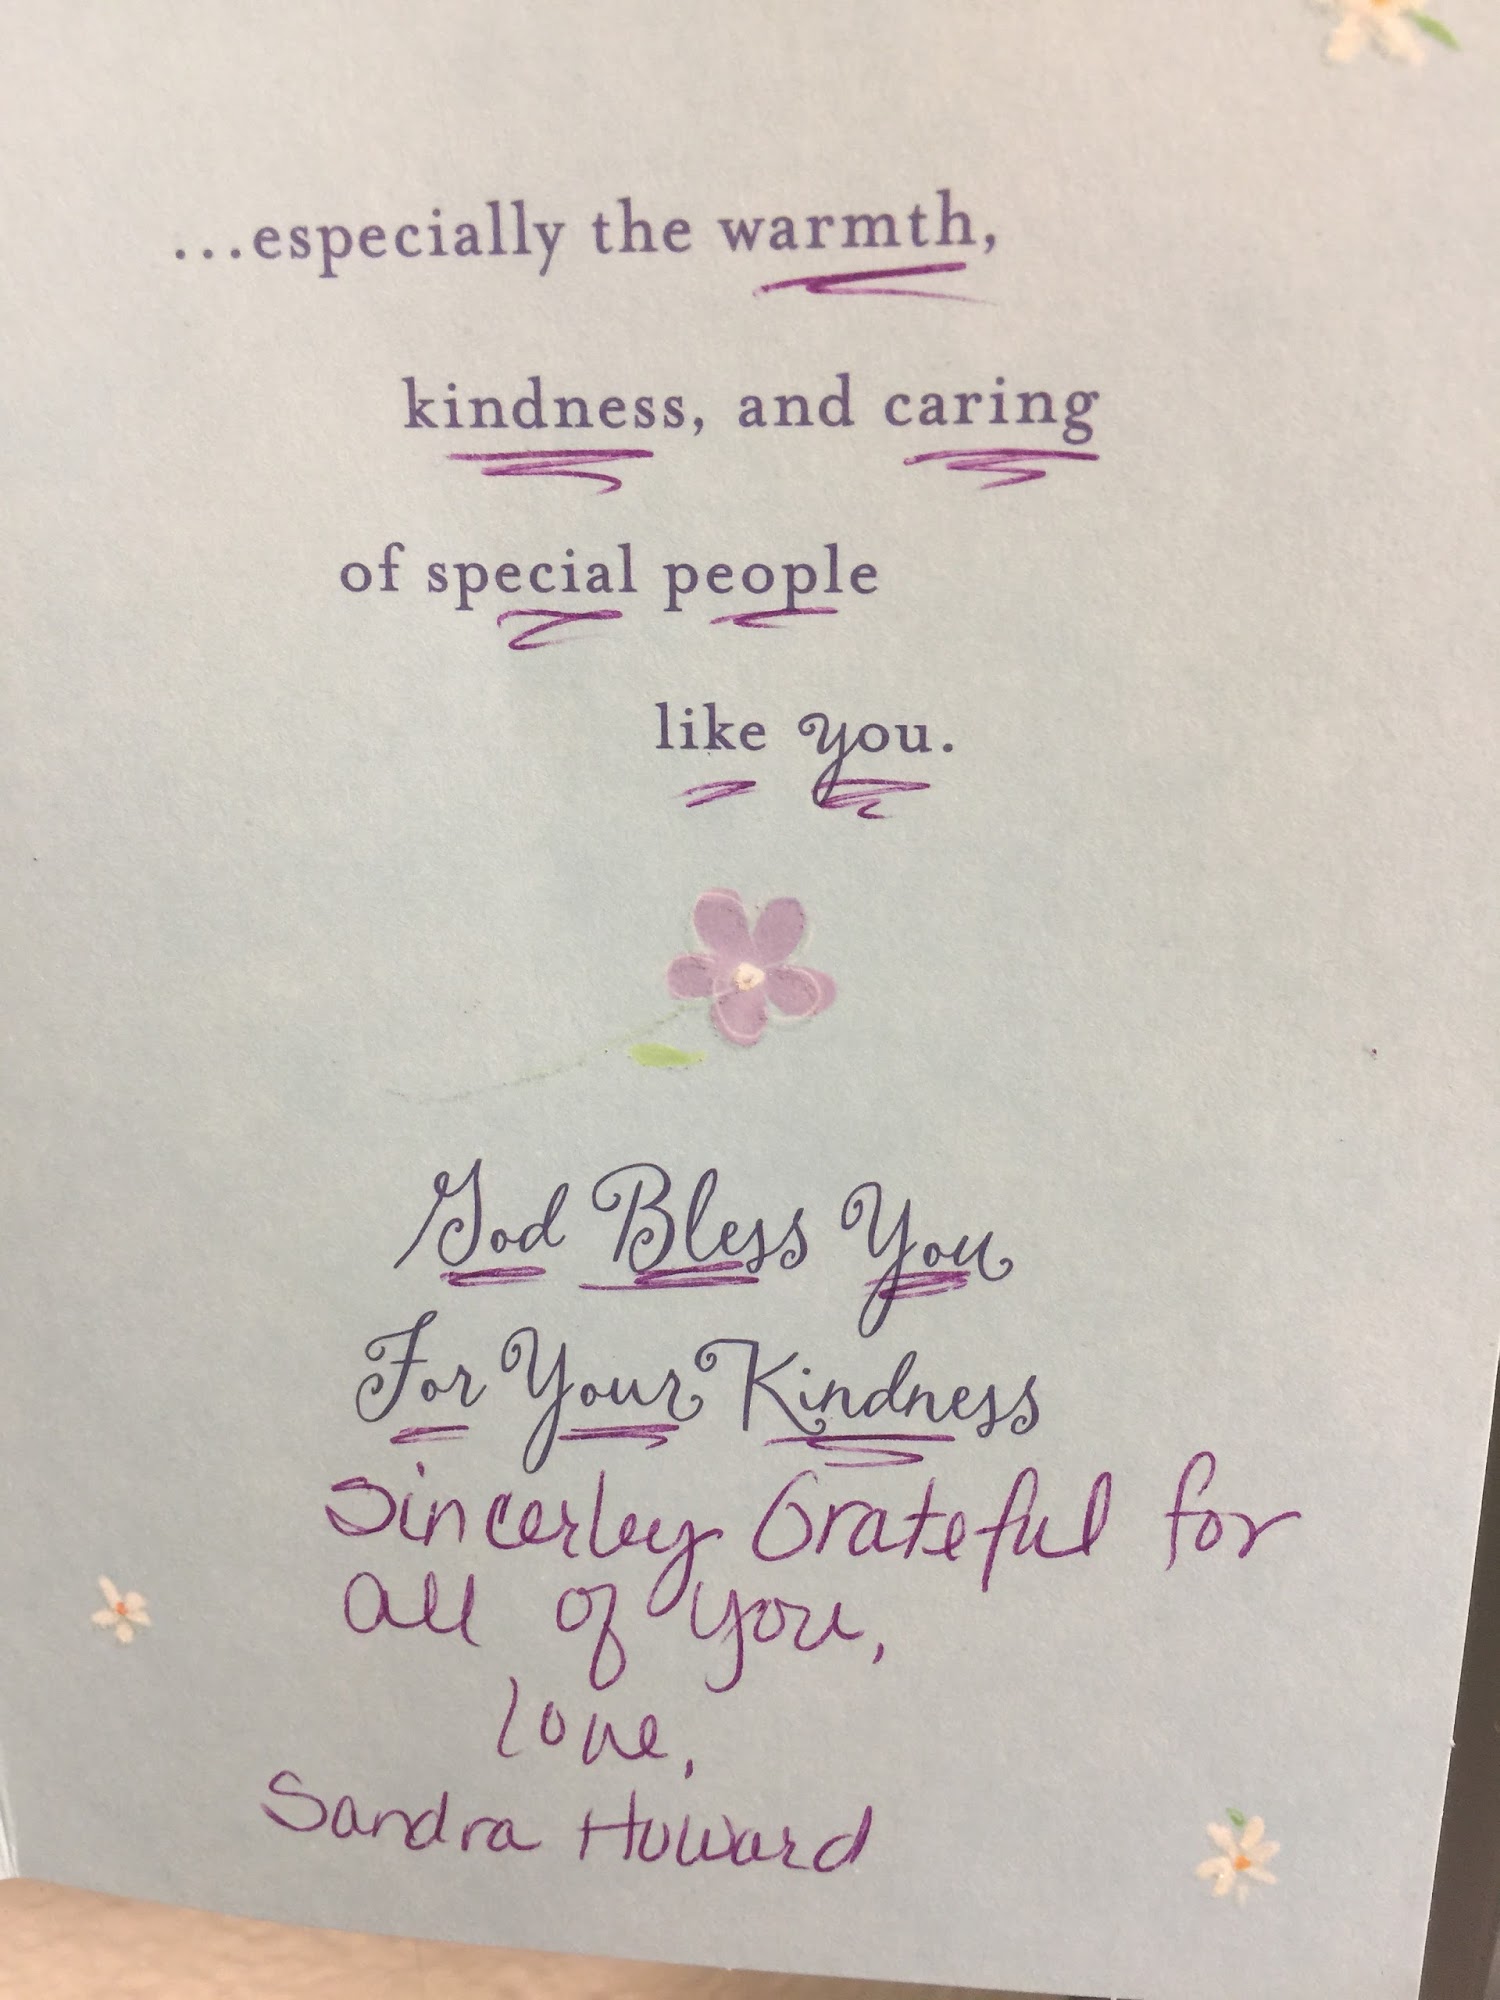 ...especially the warmth,
kindness, and caring
of special people
like you.
God Bless You
For Your Kindness
Sincerley Grateful for
all of you,
Love,
Sandra Howard